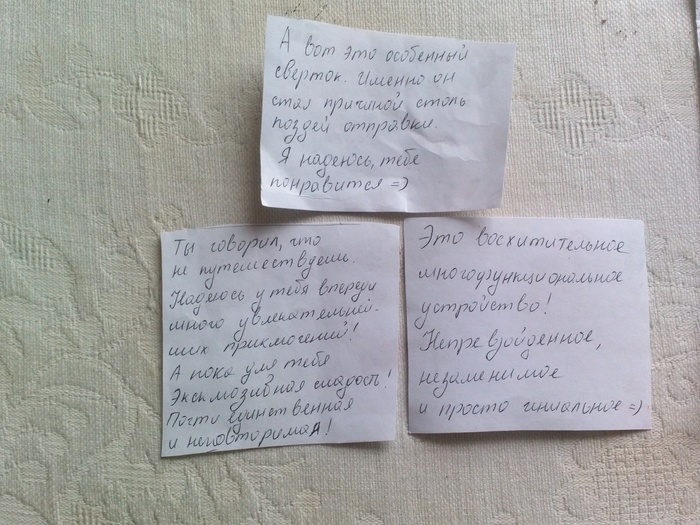 А вот это особенный
сверток. Именно он
стал причиной столь
поздей отправки.
Я надеюсь, тебе
понравится =)
Ты говорил, что
не путешествуешь.
Надеюсь у тебя впереди
много увлекательней-
ших приключений!
А пока для тебя
Эксклюзивная сладость!
Почти единственная
и неповторимая!
Это восхитительное
многофункциональное
устройство!
Непревзойденное,
незаменимое
и просто гиниальное =)